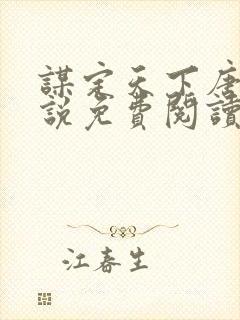 謀定天下唐
說免費閱讀
江春生